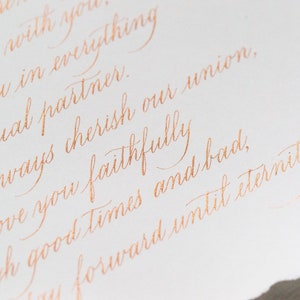 with you,
in everything
partner.
cherish our union,
you faithfully
good times and bad,
forward until eternit